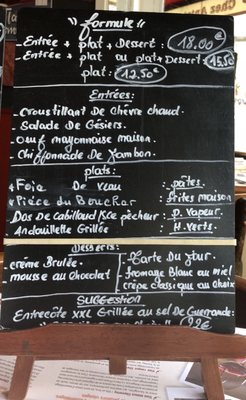 "formule"
- Entrée + plat + Dessert : 18.00€
- Entrée + plat ou plat + Dessert : 15.50
plat : 12.50€
Entrées:
- Croustillant De chèvre chaud.
- Salade De Gésiers.
- Oeuf mayonnaise maison.
- Chiffonnade De Jambon.
plats:
+ Foie De veau : pâtes.
+ Pièce du Boucher : frites maison
Dos De Cabillaud pêcheur : P. Vapeur.
Andouillette Grillée : H. verts.
Desserts:
- crème Brulée.
- mousse au Chocolat
- Tarte Du Jour.
- fromage Blanc au miel
- crêpe classique au choix
SUGGESTION
Entrecôte XXL Grillée au sel De Guerande: